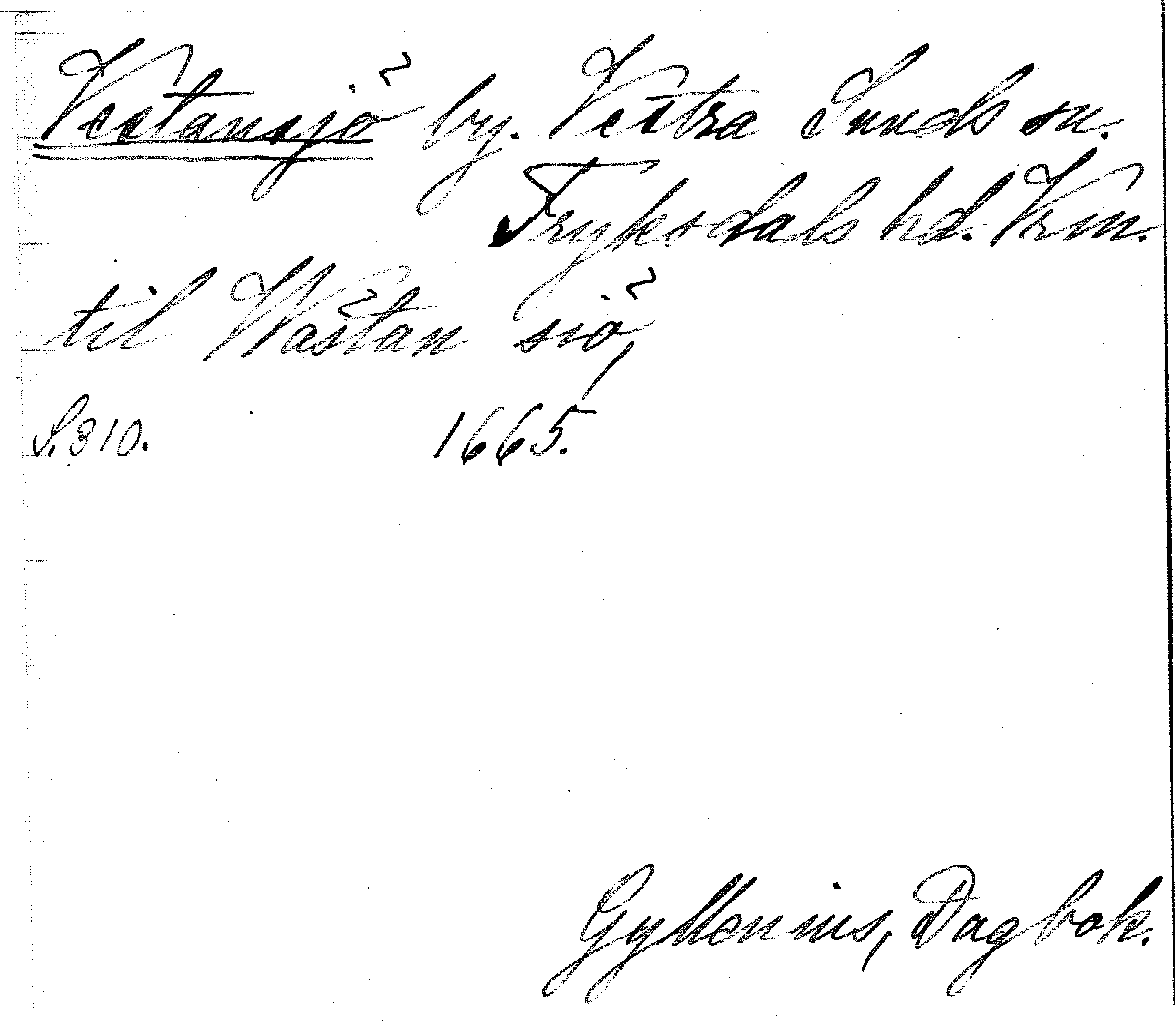 Vestansjö by. Vestra Sunds sn.
Fryksdals hd. Vrm.
til Wästan siö,
S. 310. 1665.
Gyllenius, Dagbok.